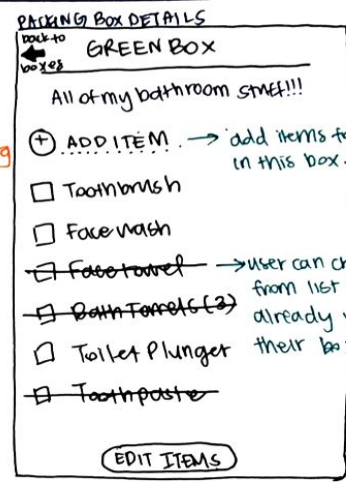 PACKING BOX DETAILS
back to
boxes
GREEN BOX
All of my bathroom stuff!!!
+ ADD ITEM → add items to
in this box.
Toothbrush
Face wash
Face towel → user can
from list
Bath Towels (3)
already
Toilet Plunger their
Toothpaste
EDIT ITEMS